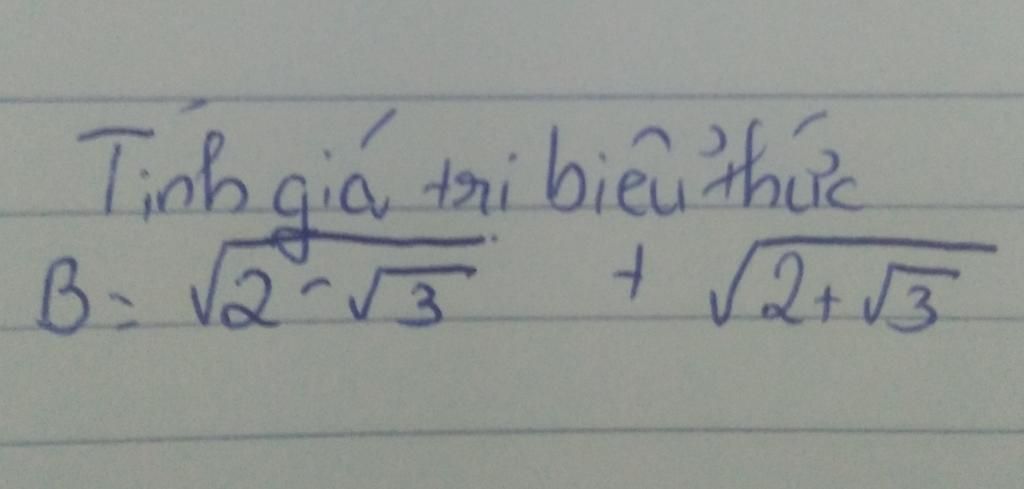 Tính giá tri biểu thức
B = √(2 - √3) + √(2 + √3)